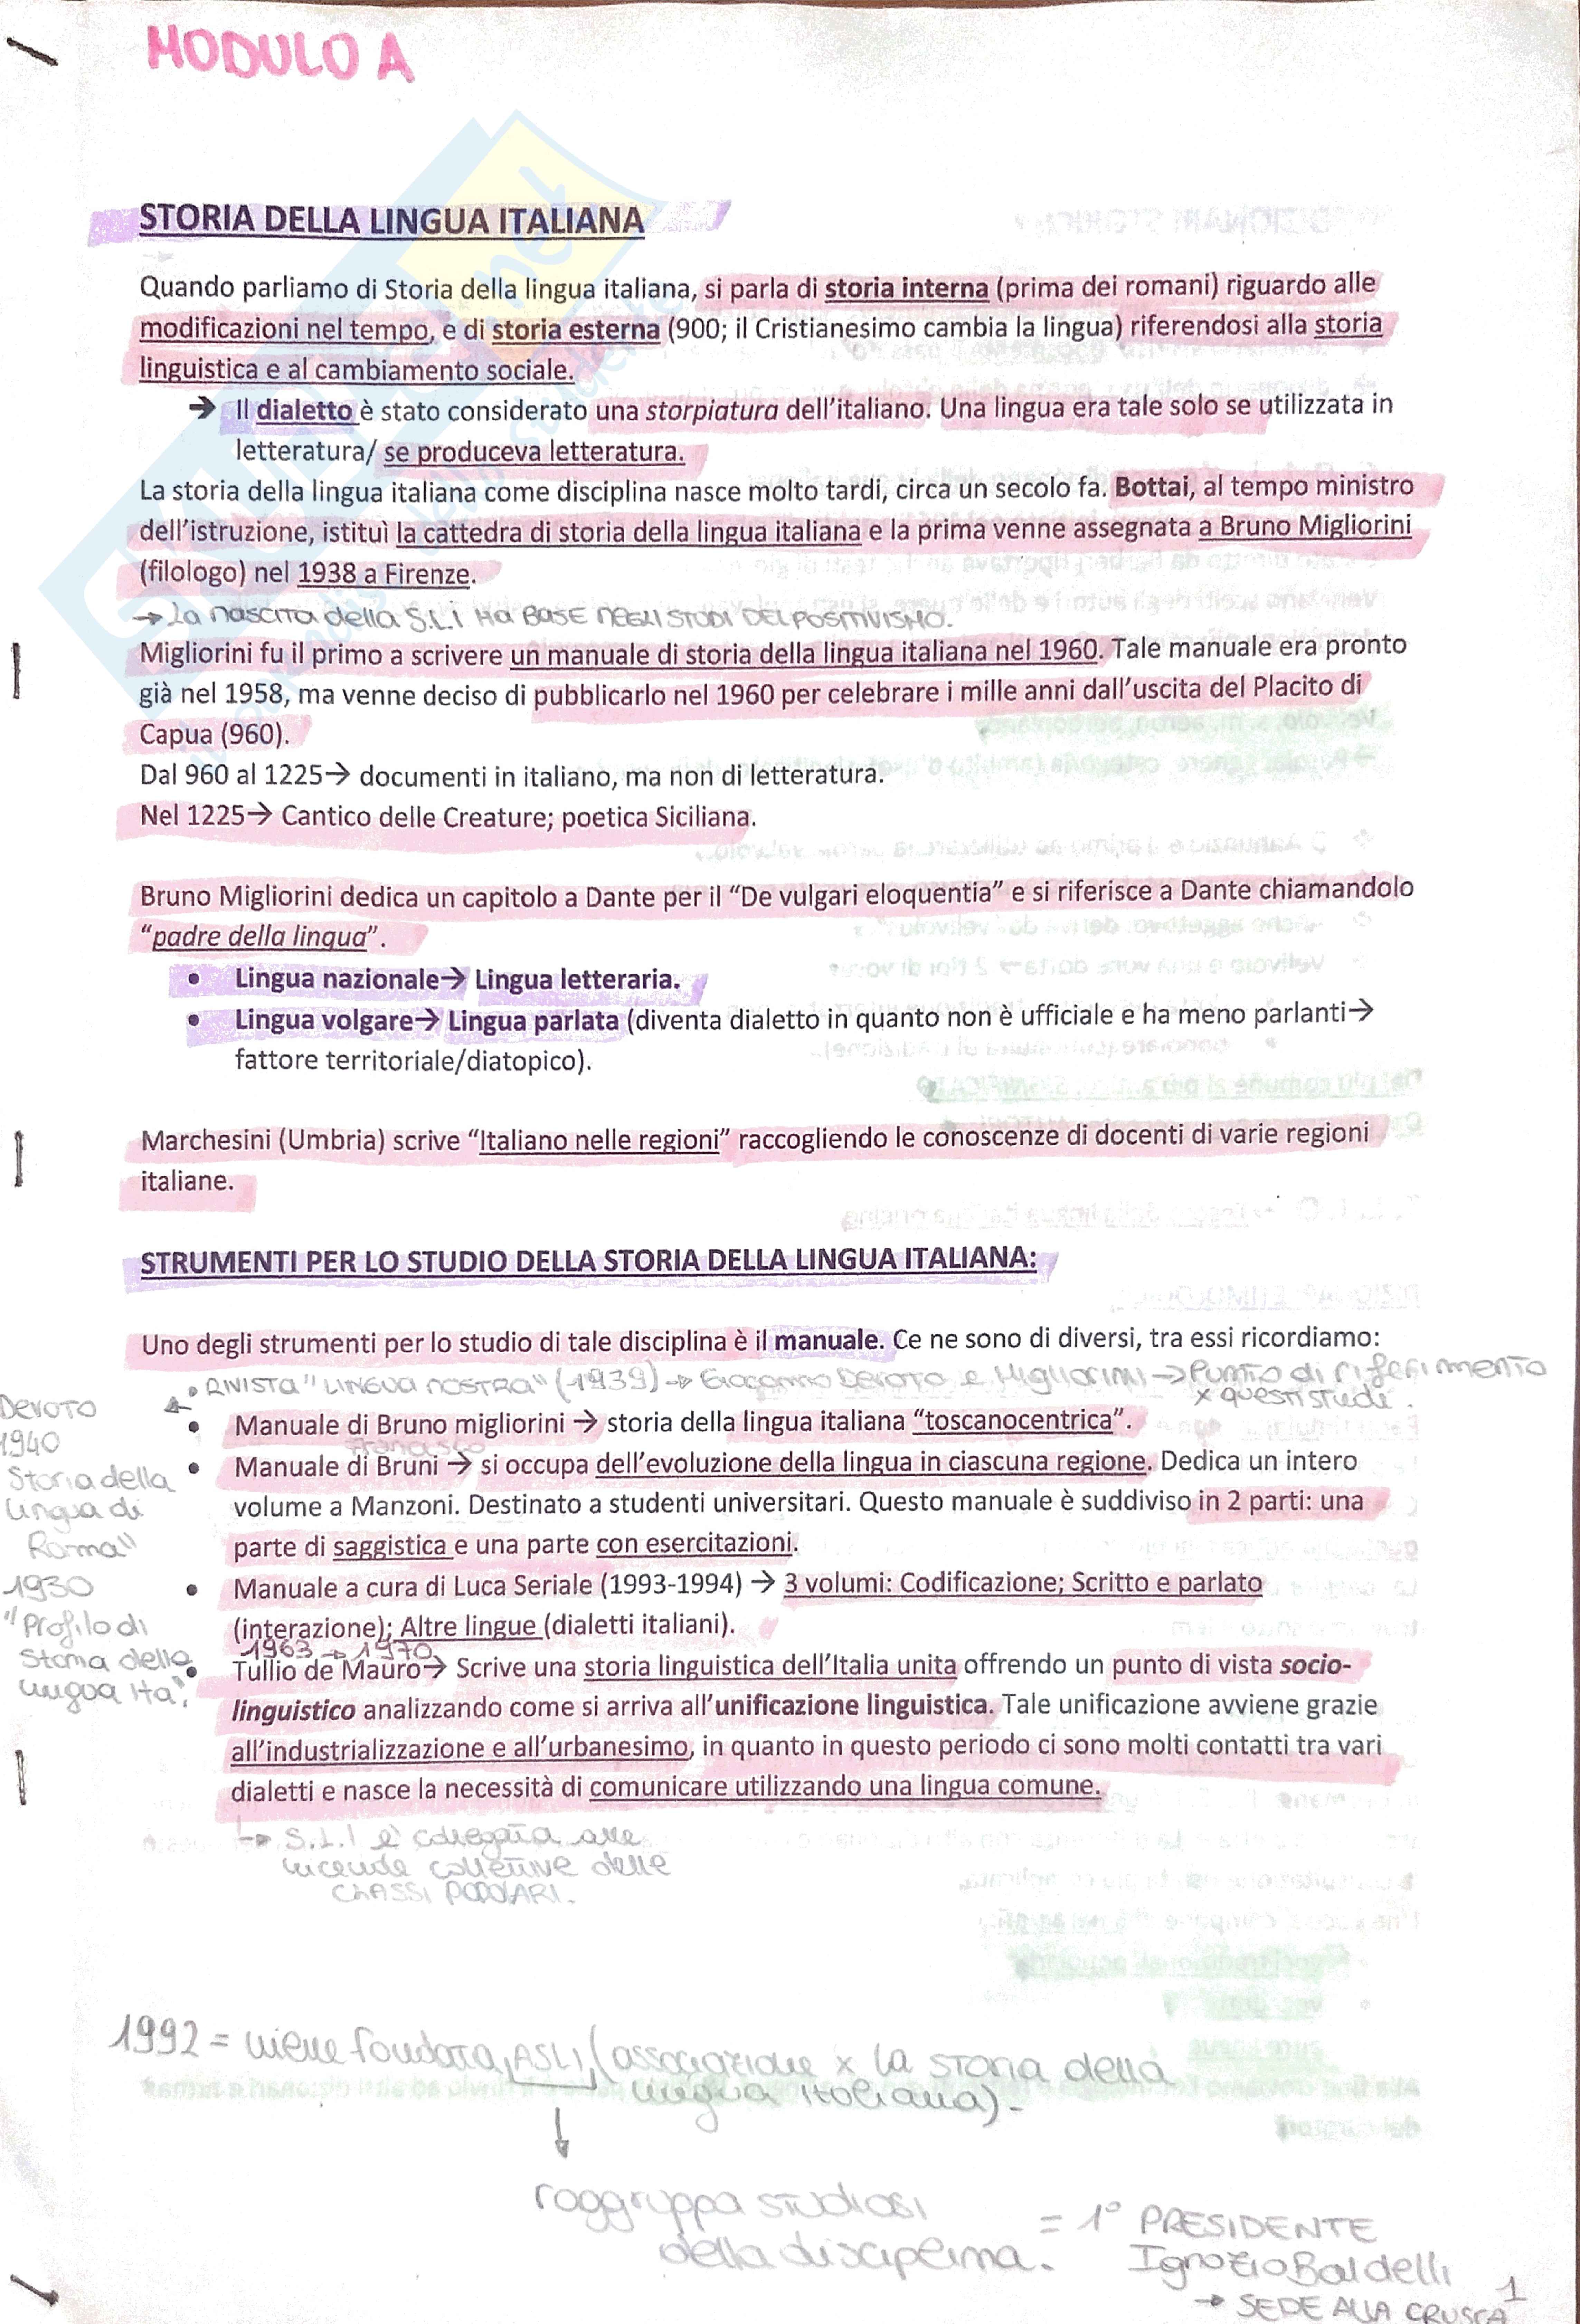 MODULO A
STORIA DELLA LINGUA ITALIANA
Quando parliamo di Storia della lingua italiana, si parla di storia interna (prima dei romani) riguardo alle
modificazioni nel tempo, e di storia esterna (900; il Cristianesimo cambia la lingua) riferendosi alla storia
linguistica e al cambiamento sociale.
→ Il dialetto è stato considerato una storpiatura dell'italiano. Una lingua era tale solo se utilizzata in
letteratura/ se produceva letteratura.
La storia della lingua italiana come disciplina nasce molto tardi, circa un secolo fa. Bottai, al tempo ministro
dell'istruzione, istituì la cattedra di storia della lingua italiana e la prima venne assegnata a Bruno Migliorini
(filologo) nel 1938 a Firenze.
→ La nascita della S.L.I HA BASE NEGLI STUDI DEL POSITIVISMO.
Migliorini fu il primo a scrivere un manuale di storia della lingua italiana nel 1960. Tale manuale era pronto
già nel 1958, ma venne deciso di pubblicarlo nel 1960 per celebrare i mille anni dall'uscita del Placito di
Capua (960).
Dal 960 al 1225→ documenti in italiano, ma non di letteratura.
Nel 1225→ Cantico delle Creature; poetica Siciliana.
Bruno Migliorini dedica un capitolo a Dante per il "De vulgari eloquentia" e si riferisce a Dante chiamandolo
"padre della lingua".
• Lingua nazionale→ Lingua letteraria.
• Lingua volgare→ Lingua parlata (diventa dialetto in quanto non è ufficiale e ha meno parlanti→
fattore territoriale/diatopico).
Marchesini (Umbria) scrive "Italiano nelle regioni" raccogliendo le conoscenze di docenti di varie regioni
italiane.
STRUMENTI PER LO STUDIO DELLA STORIA DELLA LINGUA ITALIANA:
Uno degli strumenti per lo studio di tale disciplina è il manuale. Ce ne sono di diversi, tra essi ricordiamo:
• RIVISTA "LINGUA NOSTRA" (1939) → Giacomo Devoto e Migliorini → Punto di riferimento
x questi studi.
DEVOTO
1940
Storia della
lingua di
Roma"
1930
"Profilo di
Storia della
lingua ita",
• Manuale di Bruno migliorini → storia della lingua italiana "toscanocentrica".
Francesco
• Manuale di Bruni → si occupa dell'evoluzione della lingua in ciascuna regione. Dedica un intero
volume a Manzoni. Destinato a studenti universitari. Questo manuale è suddiviso in 2 parti: una
parte di saggistica e una parte con esercitazioni.
• Manuale a cura di Luca Seriale (1993-1994) → 3 volumi: Codificazione; Scritto e parlato
(interazione); Altre lingue (dialetti italiani).
1963 → 1970
• Tullio de Mauro→ Scrive una storia linguistica dell'Italia unita offrendo un punto di vista socio-
linguistico analizzando come si arriva all'unificazione linguistica. Tale unificazione avviene grazie
all'industrializzazione e all'urbanesimo, in quanto in questo periodo ci sono molti contatti tra vari
dialetti e nasce la necessità di comunicare utilizzando una lingua comune.
→ S.L.I è collegata alle
vicende collettive delle
CLASSI POPOLARI.
1992 = viene fondata ASLI (associazione x la storia della
lingua italiana).
raggruppa studiosi
della disciplina.
= 1° PRESIDENTE
Ignazio Baldelli
→ SEDE ALLA CRUSCA
1